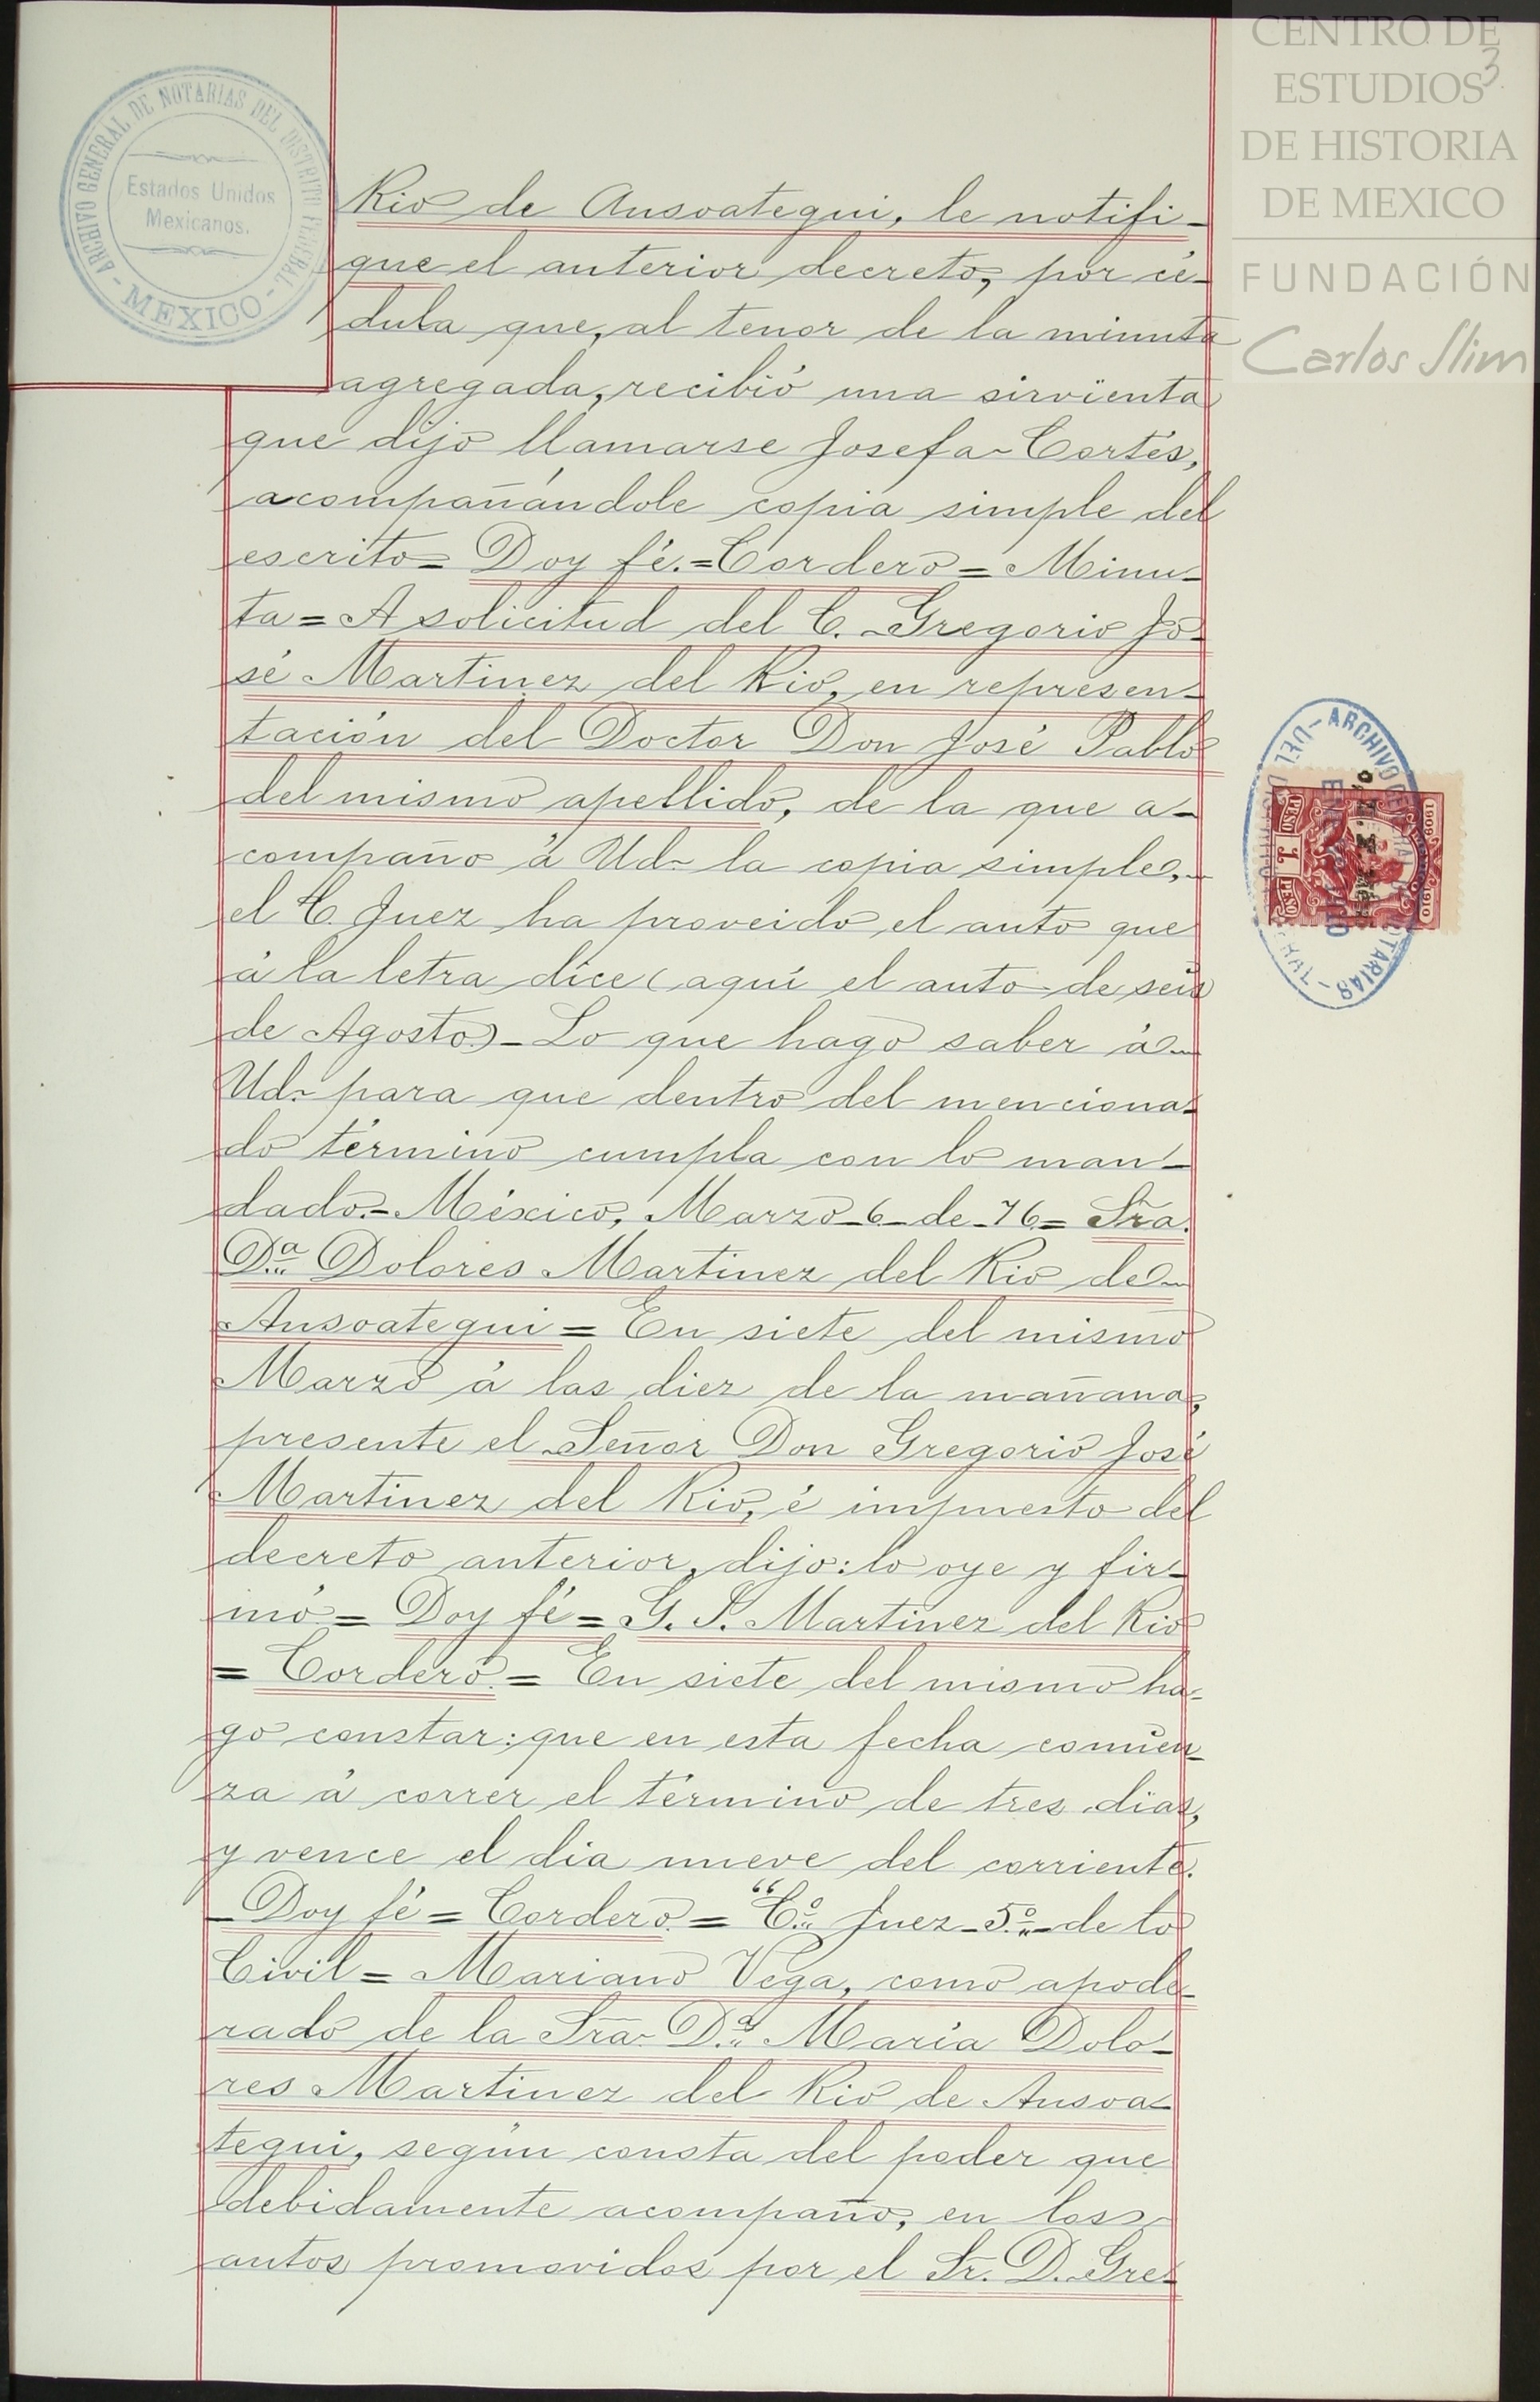 CENTRO DE
ESTUDIOS
DE HISTORIA
DE MEXICO
FUNDACIÓN
Carlos Slim
3
ARCHIVO GENERAL DE NOTARIAS DEL DISTRITO FEDERAL
- MEXICO -
Estados Unidos
Mexicanos.
Rio de Ansoategui, le notifi-
que el anterior decreto, por cé-
dula que, al tenor de la minuta
agregada, recibió una sirvienta
que dijo llamarse Josefa Cortés,
acompañándole copia simple del
escrito= Doy fé.=Cordero= Minu-
ta= A solicitud del C. Gregorio Jo-
sé Martinez del Rio, en represen-
tación del Doctor Don José Pablo
del mismo apellido, de la que a-
compaño á Ud. la copia simple,
el C. Juez ha proveido el auto que
á la letra dice (aquí el auto de seis
de Agosto)- Lo que hago saber á
Ud. para que dentro del menciona-
do término cumpla con lo man-
dado.- México, Marzo 6 de 76= Sra.
Dª Dolores Martinez del Rio de
Ansoategui= En siete del mismo
Marzo á las diez de la mañana,
presente el Señor Don Gregorio José
Martinez del Rio, é impuesto del
decreto anterior, dijo: lo oye y fir-
mó= Doy fé= G. J. Martinez del Rio
= Cordero.= En siete del mismo ha-
go constar: que en esta fecha comien-
za á correr el término de tres dias,
y vence el dia nueve del corriente.
-Doy fé= Cordero.= "Cº Juez 5º de lo
Civil= Mariano Vega, como apode-
rado de la Sra. Dª Maria Dolo-
res Martinez del Rio de Ansoa-
tegui, según consta del poder que
debidamente acompaño, en los
autos promovidos por el Sr. D. Gre-
- ARCHIVO GENERAL DE NOTARIAS -
DEL DISTRITO
1909 1910
PESO 1 PESO